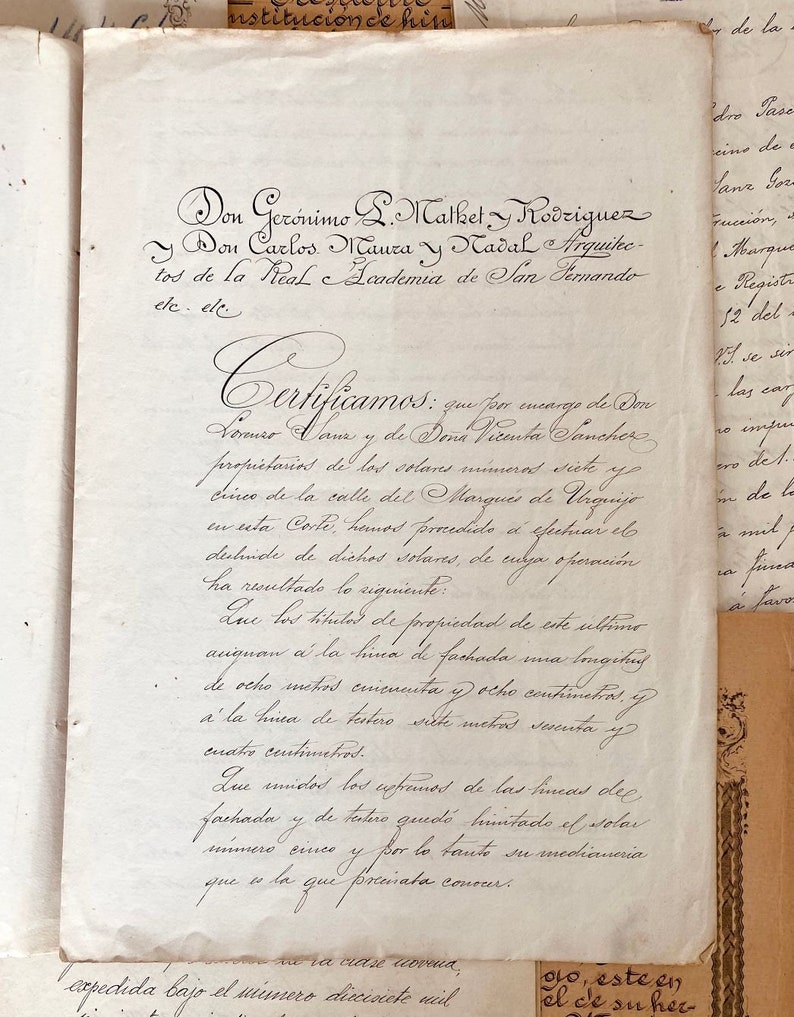 Presidente
nstitución de hin
Don Gerónimo P. Mathet y Rodriguez
y Don Carlos Maura y Nadal Arquitec-
tos de la Real Academia de San Fernando
etc. etc.
Certificamos: que por encargo de Don
Lorenzo Sanz y de Doña Vicenta Sanchez
propietarios de los solares números siete y
cinco de la calle del Marqués de Urquijo
en esta Corte, hemos procedido á efectuar el
deslinde de dichos solares, de cuya operación
ha resultado lo siguiente:
Que los titulos de propiedad de este último
asignan á la linea de fachada una longitud
de ocho metros cincuenta y ocho centimetros, y
á la linea de testero siete metros sesenta y
cuatro centimetros.
Que unidos los extremos de las lineas de
fachada y de testero quedó limitado el solar
número cinco y por lo tanto su medianeria
que es la que precisaba conocer.
dor de la
dro Pasc
cino de e
Sanz Goz
trucción, s
l Marque
e Registr
52 del
V.S. se sir
las carg
no impu
ero de 1.
ón de la
a mil p
na finca
á favor
de la clase novena,
expedida bajo el número diecisiete mil
gio, este en
el de su her-